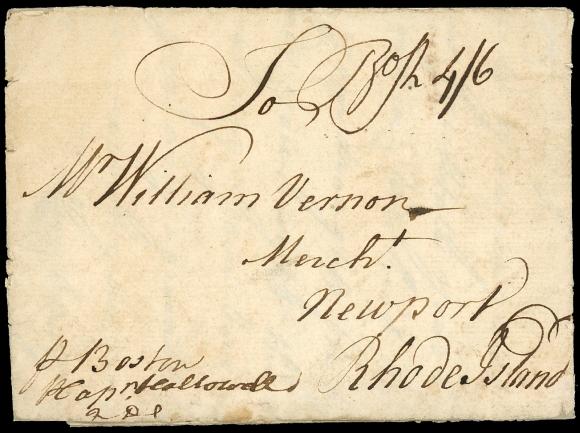 To Bosn 4/6
Mr William Vernon
Mercht
Newport
Rhode Island
p Boston
Kapn Hallowell